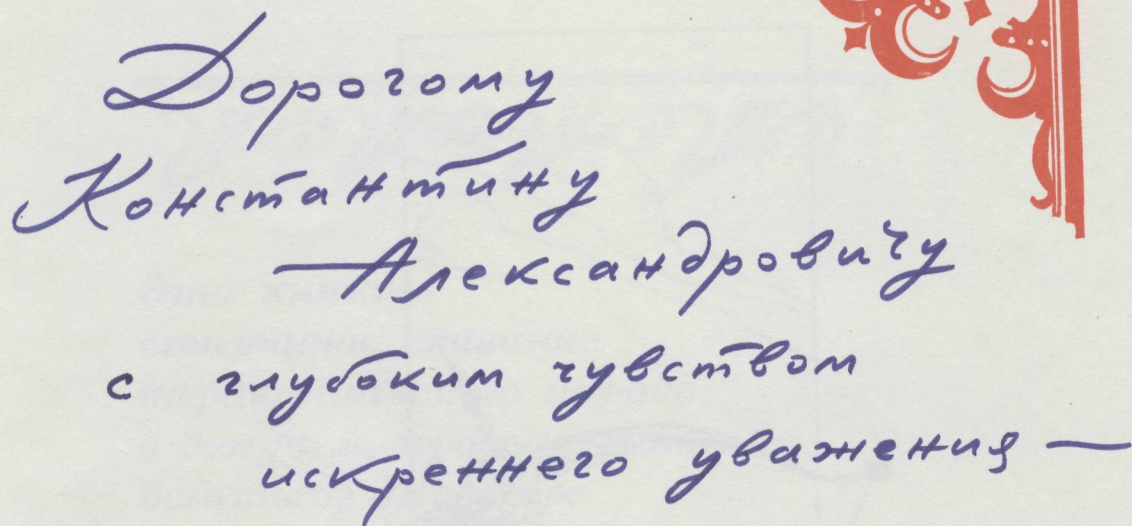 Дорогому
Константину
Александровичу
с глубоким чувством
искреннего уважения —